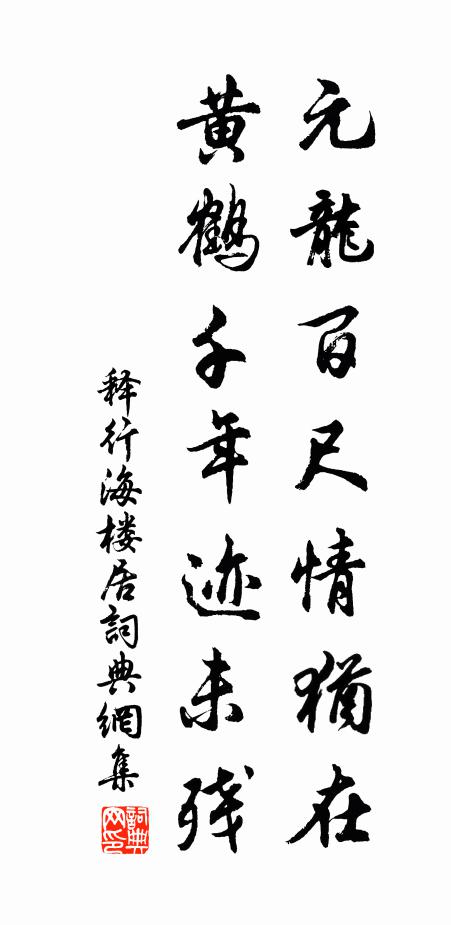 元龍百尺情猶在
黄鶴千年迹未残
释行海楼居詞典網集
詞典網印